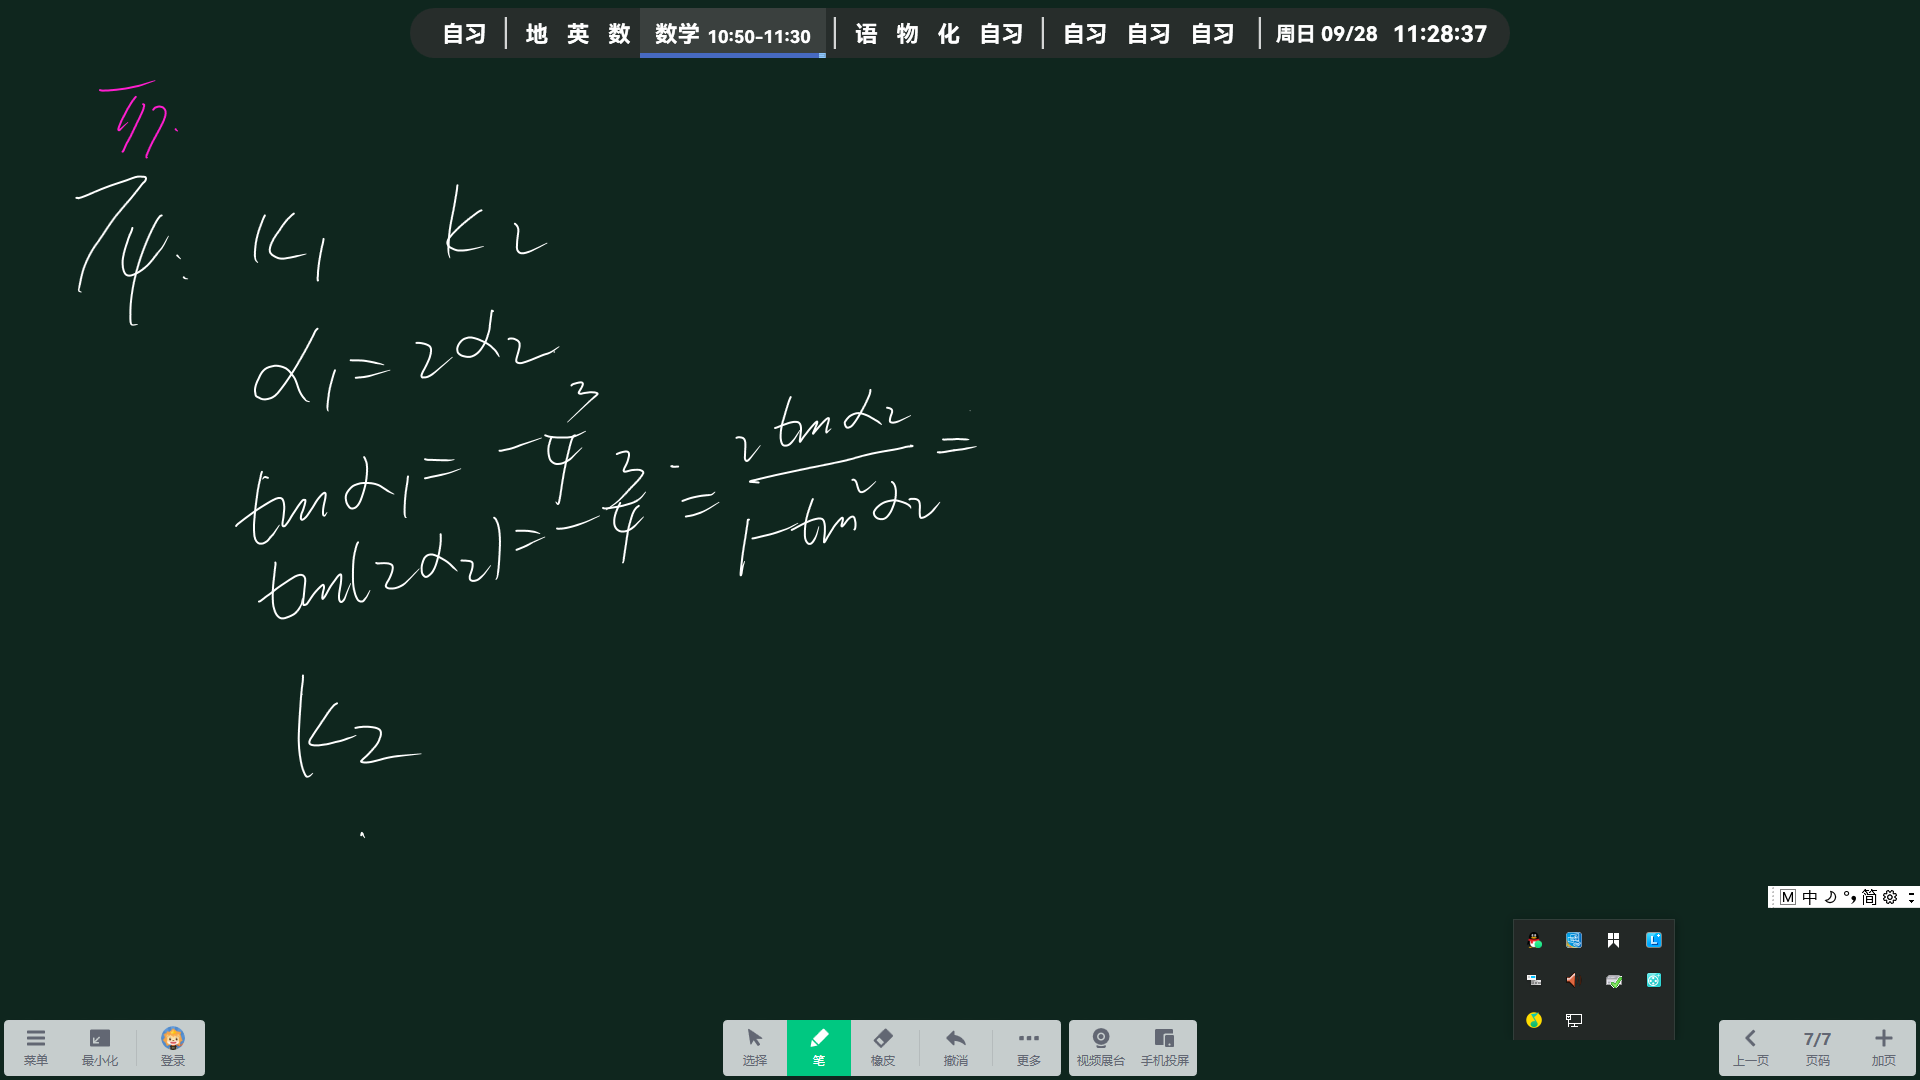 自习 | 地 英 数 数学 10:50-11:30 | 语 物 化 自习 | 自习 自习 自习 | 周日 09/28 11:28:37
T4: k1 k2
α1=2α2
tanα1=-3/4
tan(2α2)=-3/4=2tanα2/1-tan²α2=
k2
M 中 简
菜单 最小化 登录 选择 笔 橡皮 撤消 更多 视频展台 手机投屏 上一页 7/7 页码 加页